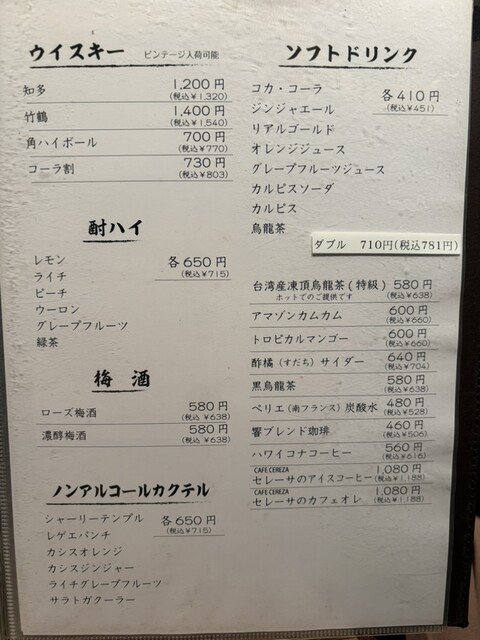 ウイスキー ビンテージ入荷可能
知多 1,200円
(税込¥1,320)
竹鶴 1,400円
(税込¥1,540)
角ハイボール 700円
(税込¥770)
コーラ割 730円
(税込¥803)
酎ハイ
レモン 各650円
(税込¥715)
ライチ
ピーチ
ウーロン
グレープフルーツ
緑茶
梅酒
ローズ梅酒 580円
(税込¥638)
濃醇梅酒 580円
(税込¥638)
ノンアルコールカクテル
シャーリーテンプル 各650円
(税込¥715)
レゲエパンチ
カシスオレンジ
カシスジンジャー
ライチグレープフルーツ
サラトガクーラー
ソフトドリンク
コカ・コーラ 各410円
(税込¥451)
ジンジャエール
リアルゴールド
オレンジジュース
グレープフルーツジュース
カルピスソーダ
カルピス
烏龍茶
ダブル 710円(税込781円)
台湾産凍頂烏龍茶(特級) 580円
ホットでのご提供です (税込¥638)
アマゾンカムカム 600円
(税込¥660)
トロピカルマンゴー 600円
(税込¥660)
酢橘(すだち)サイダー 640円
(税込¥704)
黒烏龍茶 580円
(税込¥638)
ペリエ(南フランス)炭酸水 480円
(税込¥528)
響ブレンド珈琲 460円
(税込¥506)
ハワイコナコーヒー 560円
(税込¥616)
CAFE CEREZA
セレーサのアイスコーヒー 1,080円
(税込¥1,188)
CAFE CEREZA
セレーサのカフェオレ 1,080円
(税込¥1,188)